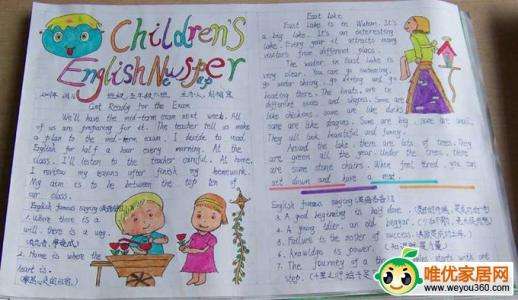 Children's
English Nwsper
Get Ready for the Exam
We'll have the mid-term exam next week. All
of us are preparing for it. The teacher tell us make
a plan to the mid-term exam. I decide to read
English for half a hour every morning. At the
class. I'll listen to the teacher careful. At home,
I review my exams after finish my homework.
My aim is to be between the top ten of
our class.
English famous saying
1. Where there is a
will, there is a
way.
2. Home is where the
heart is.
East Lake
East Lake is in Wuhan. It's
a big lake. It's an interesting
lake. Every year it attracts many
visitors from different places.
The water in East Lake is
very clear. You can go swimming,
go water skiing, go diving and go
boating there. The boats are in
different sizes and shapes. Some are like
chickens, some are like ducks,
some are like dragons. Some are big, some are small.
They all look beautiful and funny.
Around the lake, there are lots of trees. They
are green all the year. Under the trees, there
are some stone chairs. When feel tired, you can
sit down and have a rest.
English famous saying
3. A good beginning is half done.
4. A young idler, an old beggar.
5. Failure is the mother of success.
6. Knowledge is power.
7. The journey of a
step.
唯优家居网
www.weyou360.com